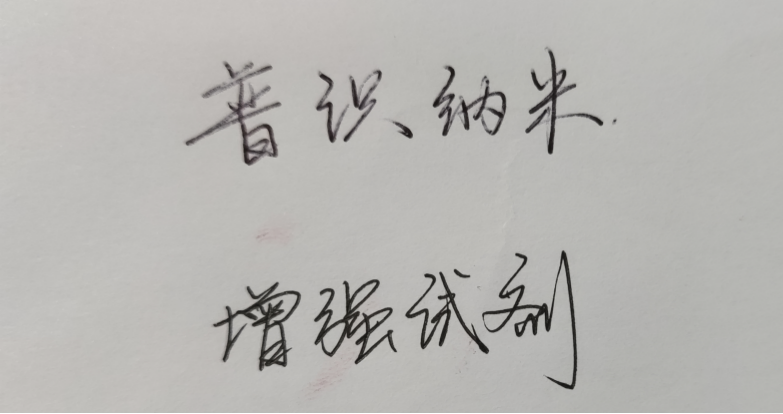 普识纳米
增强试剂